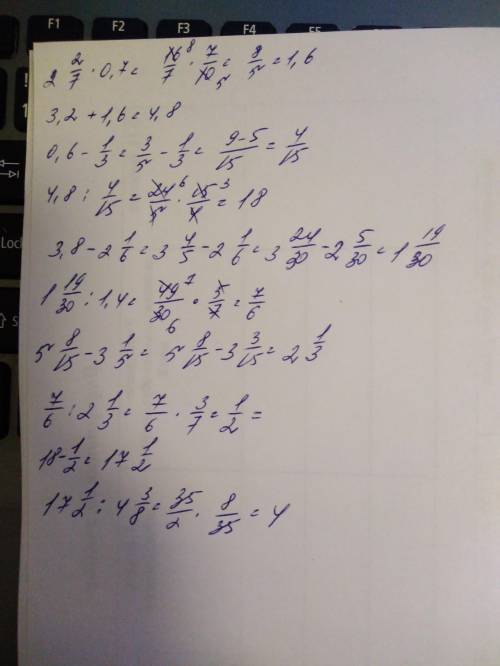 F1 F2 F3 F4 F5 F6
2 2/7 · 0,7 = 16 8/7 · 7/10 5 = 8/5 = 1,6
3,2 + 1,6 = 4,8
0,6 - 1/3 = 3/5 - 1/3 = 9-5/15 = 4/15
4,8 : 4/15 = 24 6/5 · 15 3/4 = 18
3,8 - 2 1/6 = 3 4/5 - 2 1/6 = 3 24/30 - 2 5/30 = 1 19/30
1 19/30 : 1,4 = 49 7/30 6 · 5/7 = 7/6
5 8/15 - 3 1/5 = 5 8/15 - 3 3/15 = 2 1/3
7/6 : 2 1/3 = 7/6 · 3/7 = 1/2 =
18 - 1/2 = 17 1/2
17 1/2 : 4 3/8 = 35/2 · 8/35 = 4